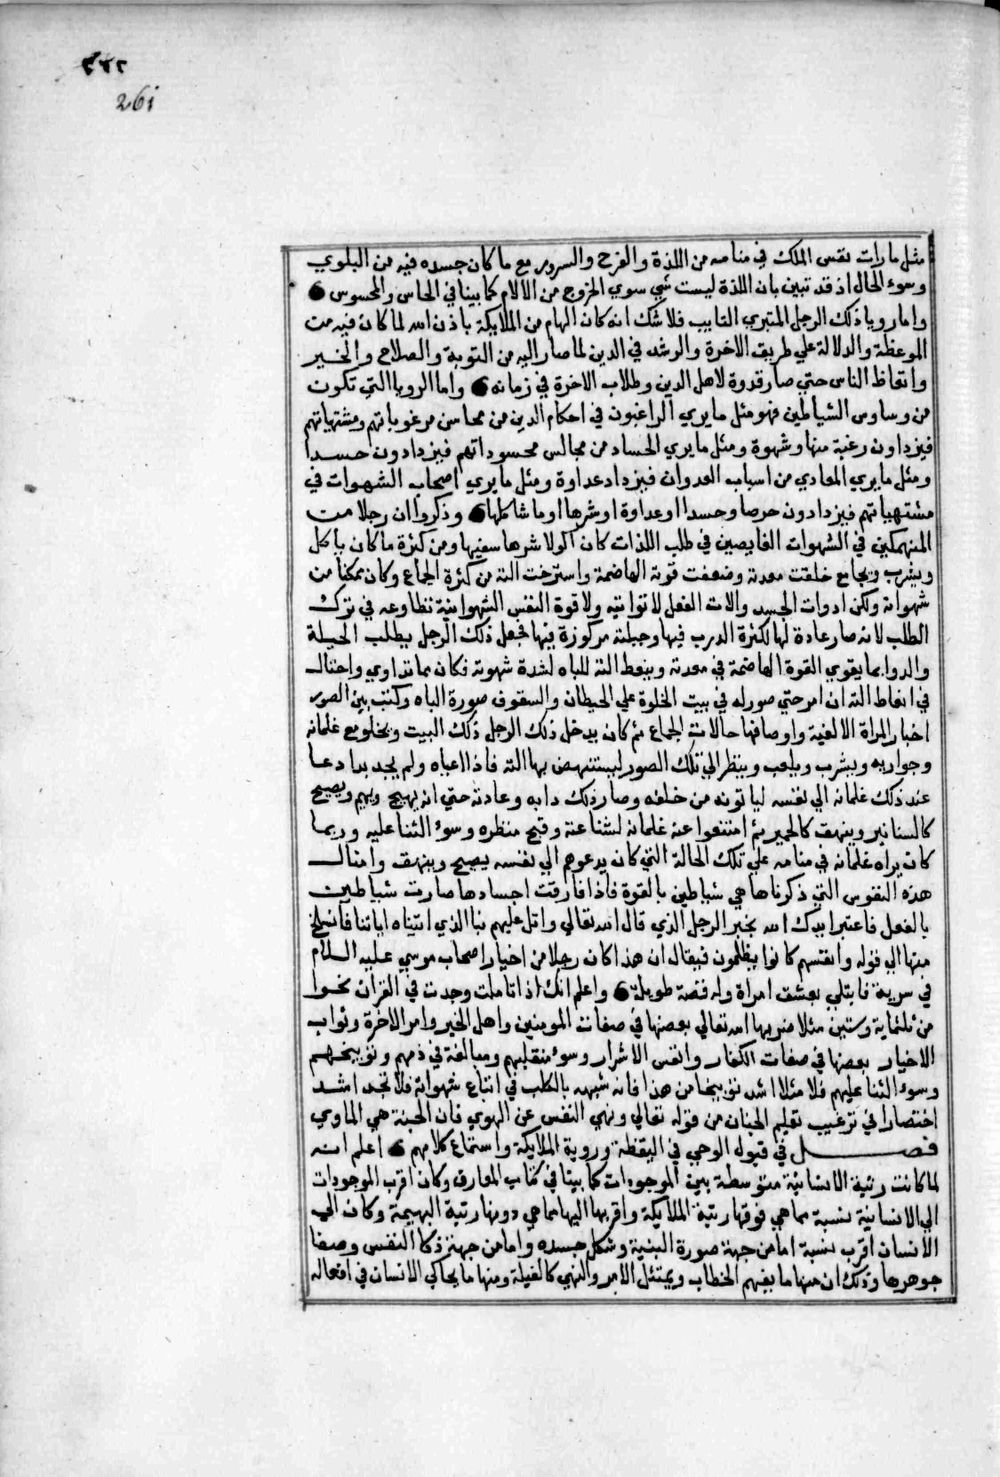 ٢٦٢
261
مثل ما رات نفس الملك في منامه من اللذة والفرح والسرور مع ما كان جسده فيه من البلوي
وسوء الحال اذ قد تبين بان اللذة ليست شي سوي الخروج من الالام كما بينا في الحاس والمحسوس
واما رويا ذلك الرجل المتبري التايب فلا شك انه كان الهام من الملايكة باذن الله لما كان فيه من
الموعظة والدلالة علي طريق الاخرة والرشد في الدين لما صار اليه من التوبة والصلاح والخير
واتعاظ الناس حتي صار قدوة لاهل الدين وطلاب الاخرة في زمانه واما الرويا التي تكون
من وساوس الشياطين فهو مثل ما يري الراغبون في احكام الدين من محاسن مرغوباتهم ومشتهياتهم
فيزدادون رغبة منها وشهوة ومثل ما يري الحساد من مجالس محسوداتهم فيزدادون حسدا
ومثل ما يري المعادي من اسباب العدوان فيزداد عداوة ومثل ما يري اصحاب الشهوات في
مشتهياتهم فيزدادون حرصا وحسدا او عداوة او شرها او ما شاكلها وذكروا ان رجلا من
المنهمكين في الشهوات الغايصين في طلب اللذات كان اكولا شرها سفيها ومن كثرة ما كان ياكل
ويشرب ويجامع خلقت معدته وضعفت قوته الهاضمة واسترخت الته من كثرة الجماع وكان تمكنا من
شهواته ولكن ادوات الجسد والات الفعل لا تواتيه ولا قوة النفس الشهوانية تطاوعه في ترك
الطلب لانه صار عادة لها لكثرة الدرب فيها وجبلته مركوزة فيها فجعل ذلك الرجل يطلب الحيلة
والدوا بما يقوي القوة الهاضمة في معدته وينعظ الته للباه لشدة شهوته فكان مما تداوي واحتال
في انعاظ الته ان امر حتي صور له في بيت الخلوة علي الحيطان والسقوف صورة الباه وكتب بين الصور
اخبار المراة الالفية واوصافها حالات الجماع ثم كان يدخل ذلك الرجل ذلك البيت ويخلو مع غلمانه
وجواريه ويشرب ويلعب وينظر الي تلك الصور ليستنهض بها الته فاذا اعياه ولم يجد بدا دعا
عند ذلك غلمانه الي نفسه لياتونه من خلفه وصار ذلك دابه وعادته حتي انه يهيج ويهم ويصيح
كالسنانير وينهق كالحمير ثم امتنعوا عنه غلمانه لشناعته وقبح منظره وسوء الثنا عليه وربما
كان يراه غلمانه في منامه علي تلك الحالة التي كان يدعوهم الي نفسه يصيح وينهق وامثال
هذه النفوس التي ذكرناها هي شياطين بالقوة فاذا فارقت اجسادها صارت شياطين
بالفعل فاعتبر ايدك الله بخبر الرجل الذي قال الله تعالي واتل عليهم نبا الذي اتيناه اياتنا فانسلخ
منها الي قوله وانفسهم كانوا يظلمون فيقال ان هذا كان رجلا من اخيار اصحاب موسي عليه السلام
في سرية فابتلي بعشق امراة وله قصة طويلة واعلم انك اذا تاملت وجدت في القران نحوا
من ثلثماية وستين مثلا ضربها الله تعالي بعضها في صفات المومنين واهل الخير وامر الاخرة وثواب
الاخيار بعضها في صفات الكفار وانفس الاشرار وسوء منقلبهم ومبالغة في ذمهم وتوبيخهم
وسوء الثنا عليهم فلا مثلا اشد توبيخا من هذا فانه شبهه بالكلب في اتباع شهواته فلا تجد اشد
اختصارا في ترغيب نعيم الجنان من قوله تعالي ونهي النفس عن الهوي فان الجنة هي الماوي
فصل في قبول الوحي في اليقظة وروية الملايكة واستماع كلامهم اعلم انه
لما كانت رتبة الانسانية متوسطة بين الموجودات كما بينا في كتاب المعارف وكان اقرب الموجودات
الي الانسانية نسبة مما هي فوقها رتبة الملايكة واقربها اليها مما هي دونها رتبة البهيمة وكان الي
الانسان اقرب نسبة اما من جهة صورة البنية وشكل جسده واما من جهة ذكا النفس وصفا
جوهرها وذلك ان منها ما يفهم الخطاب ويمتثل الامر والنهي كالفيلة ومنها ما يحاكي الانسان في افعاله